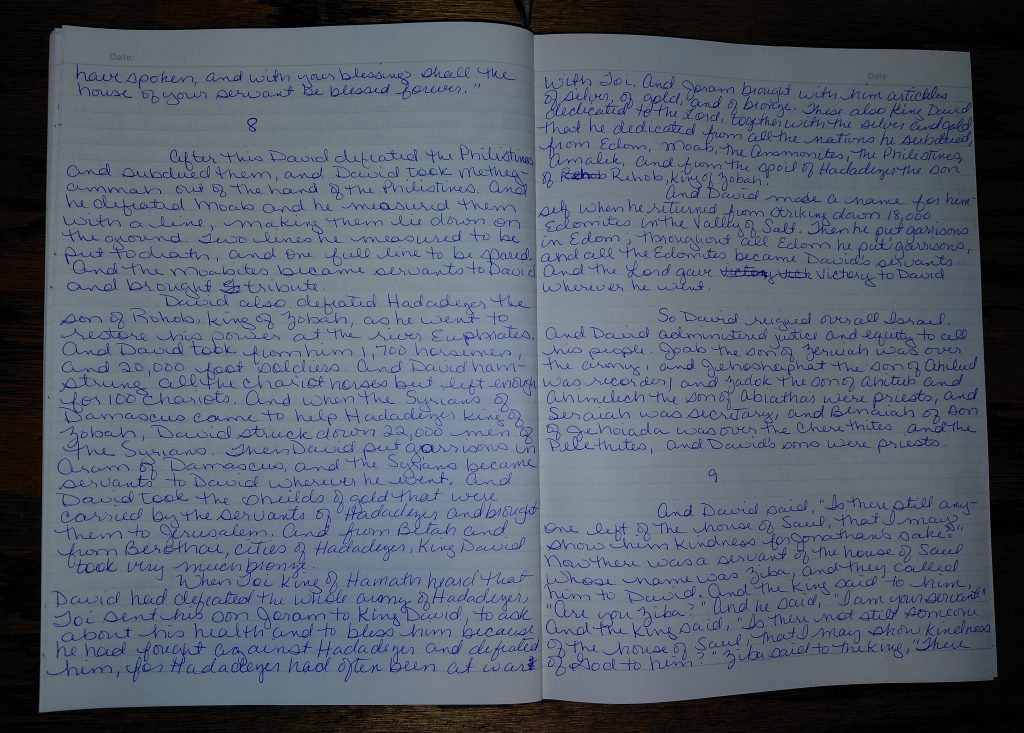 Date:
have spoken, and with your blessing shall the
house of your servant be blessed forever."
8
After this David defeated the Philistines
and subdued them, and David took Metheg-
ammah out of the hand of the Philistines. And
he defeated Moab and he measured them
with a line, making them lie down on
the ground. Two lines he measured to be
put to death, and one full line to be spared.
And the Moabites became servants to David
and brought tribute.
David also defeated Hadadezer the
son of Rohob, king of Zobah, as he went to
restore his power at the river Euphrates.
And David took from him 1,700 horsemen,
and 20,000 foot soldiers. And David ham-
strung all the chariot horses but left enough
for 100 chariots. And when the Syrians of
Damascus came to help Hadadezer king of
Zobah, David struck down 22,000 men of
the Syrians. Then David put garrisons in
Aram of Damascus, and the Syrians became
servants to David wherever he went. And
David took the sheilds of gold that were
carried by the servants of Hadadezer and brought
them to Jerusalem. And from Betah and
from Berothai, cities of Hadadezer, King David
took very much bronze.
When Toi King of Hamath heard that
David had defeated the whole army of Hadadezer,
Toi sent his son Joram to King David, to ask
about his health and to bless him because
he had fought against Hadadezer and defeated
him, for Hadadezer had often been at war
Date:
with Toi. And Joram brought with him articles
of silver, of gold, and of bronze. These also King David
dedicated to the Lord, together with the silver and gold
that he dedicated from all the nations he subdued,
from Edom, Moab, the Ammonites, the Philistines,
Amalek, and from the spoil of Hadadezer the son
of Rehob, king of Zobah.
And David made a name for him-
self when he returned from striking down 18,000
Edomites in the Valley of Salt. Then he put garrisons
in Edom, throughout all Edom he put garrisons,
and all the Edomites became David's servants.
And the Lord gave victory to David
wherever he went.
So David reigned over all Israel.
And David administered justice and equity to all
his people. Joab the son of Zeruiah was over
the army, and Jehoshaphat the son of Ahilud
was recorder, and Zadok the son of Ahitub and
Ahimelech the son of Abiathar were priests, and
Seraiah was secretary, and Benaiah of son
of Jehoiada was over the Cherethites and the
Pelethites, and David's sons were priests.
9
And David said, "Is there still any-
one left of the house of Saul, that I may
show him kindness for Jonathan's sake?"
Now there was a servant of the house of Saul
whose name was Ziba, and they called
him to David. And the King said to him,
"Are you Ziba?" And he said, "I am your servant."
And the King said, "Is there not still someone
of the house of Saul, that I may show kindness
of God to him?" Ziba said to the King, "There